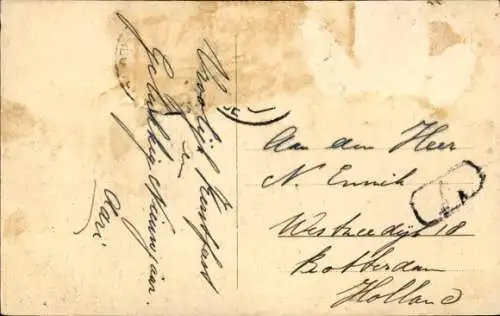 Vroolijk Kerstfeest
en
Gelukkig Nieuwjaar
Aan den Heer
N. Ennik
Westzeedijk 18
Rotterdam
Holland